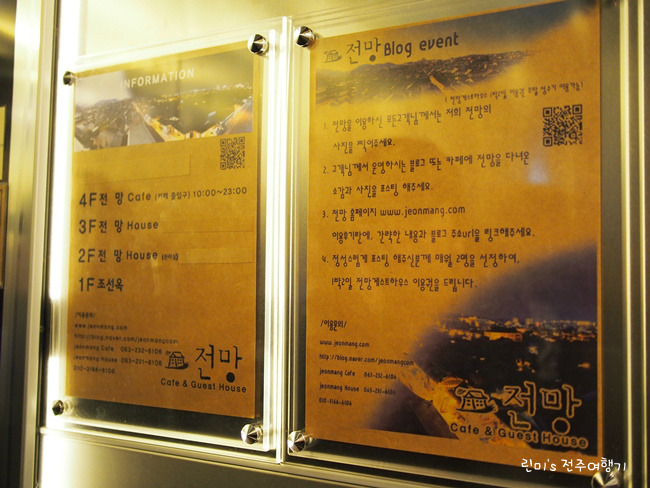 INFORMATION
4F 전 망 Cafe (카페 출입구) 10:00~23:00
3F 전 망 House
2F 전 망 House
1F 조선옥
/이용문의/
www.jeonmang.com
http://blog.naver.com/jeonmangcom
jeonmang Cafe 063-232-6106
jeonmang House 063-231-6106
010-3166-6106
전망
Cafe & Guest House
전망 Blog event
1. 전망을 이용하신 모든고객님께서는 저희 전망의
사진을 찍어주세요.
2. 고객님께서 운영하시는 블로그 또는 카페에 전망을 다녀온
소감과 사진을 포스팅 해주세요.
3. 전망 홈페이지 www.jeonmang.com
이용후기란에, 간략한 내용과 블로그 주소url을 링크해주세요.
4. 정성스럽게 포스팅 해주신분께 매월 2명을 선정하여,
1박2일 전망게스트하우스 이용권을 드립니다.
/이용문의/
www.jeonmang.com
http://blog.naver.com/jeonmangcom
jeonmang Cafe 063-232-6106
jeonmang House 063-231-6106
010-3166-6106
전망
Cafe & Guest House
린미's 전주여행기